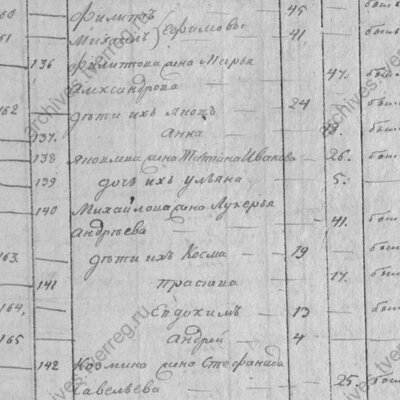 160 Филиппъ 45
161 Михаилъ } Ефимовы 41
136 Филиппова жена Марья 47. бы
Александрова
162 дѣти ихъ Яковъ 24 бы
137. Анна бы
138 Яковлева жена Татьяна Иванова 26. бы
139 дочь ихъ Ульяна 5. бы
140 Михайлова жена Лукерья
Андрѣева 41. бы
163. дѣти ихъ Косма 19
141 Прасковья 17. бы
164, Евдокимъ 13 бы
165 Андрей 4 бы
142 Козмина жена Стефанида
Савельева 25. бы
archives.tverreg.ru